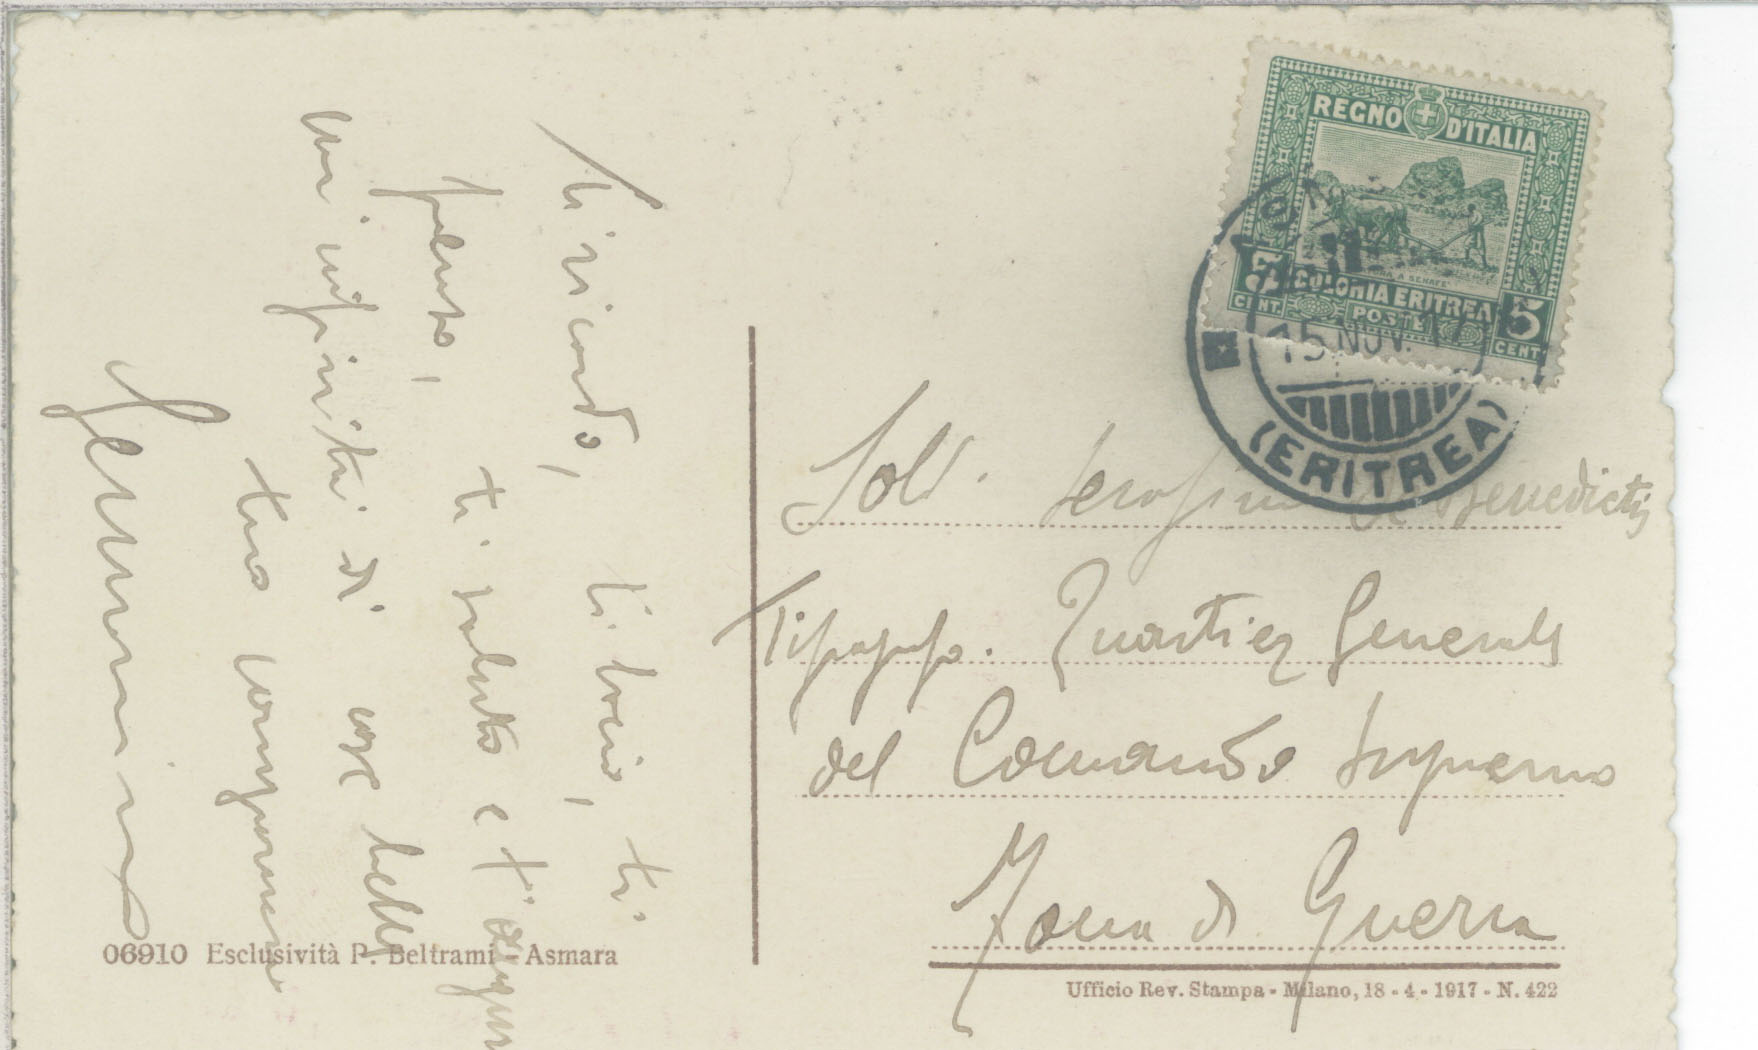 Ti ricordo, ti bacio, ti
penso, ti saluto e t'augur
un'infinità di cose belle
tuo
REGNO D'ITALIA
A SENAFÈ
COLONIA ERITREA
5 CENT. POSTE 5 CENT.
15 NOV. 17
(ERITREA)
Sold. Serafino de Benedictis
Tipografo. Quartier Generale
del Comando Supremo
Zona di Guerra
06910 Esclusività P. Beltrami - Asmara
Ufficio Rev. Stampa - Milano, 18 - 4 - 1917 - N. 422